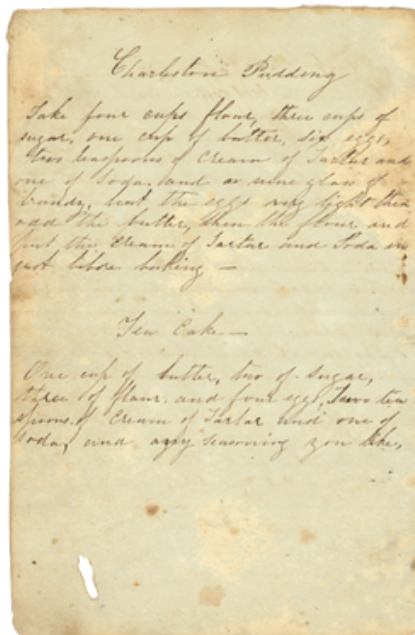 Charleston Pudding
Take four cups flour, three cups of
sugar, one cup of butter, six eggs,
two teaspoons of Cream of Tartar and
one of Soda, and a wine glass of
brandy, beat the eggs very light then
add the butter, then the flour and
put the Cream of Tartar and Soda in
just before baking —
Tea Cake —
One cup of butter, two of sugar,
three of flour, and four eggs, Two tea
spoons of Cream of Tartar and one of
Soda, and any seasoning you like,